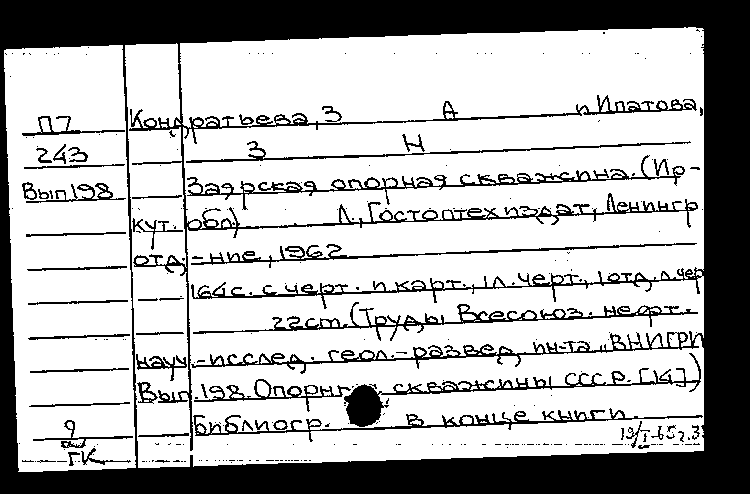 П7 Кондратьева, З А и Ипатова,
243 З Н
Вып 198 Заярская опорная скважина. (Ир-
кут. обл) Л, Гостоптехиздат, Ленингр
отд-ние, 1962
164с. с черт. и карт., 1л. черт., 1 отд. л. чер
22см. (Труды Всесоюз. нефт.
науч.-исслед. геол.-развед. ин-та „ВНИГРИ
Вып. 198. Опорные скважины СССР. [14])
Библиогр. в конце книги.
19/I-65г.
ГК